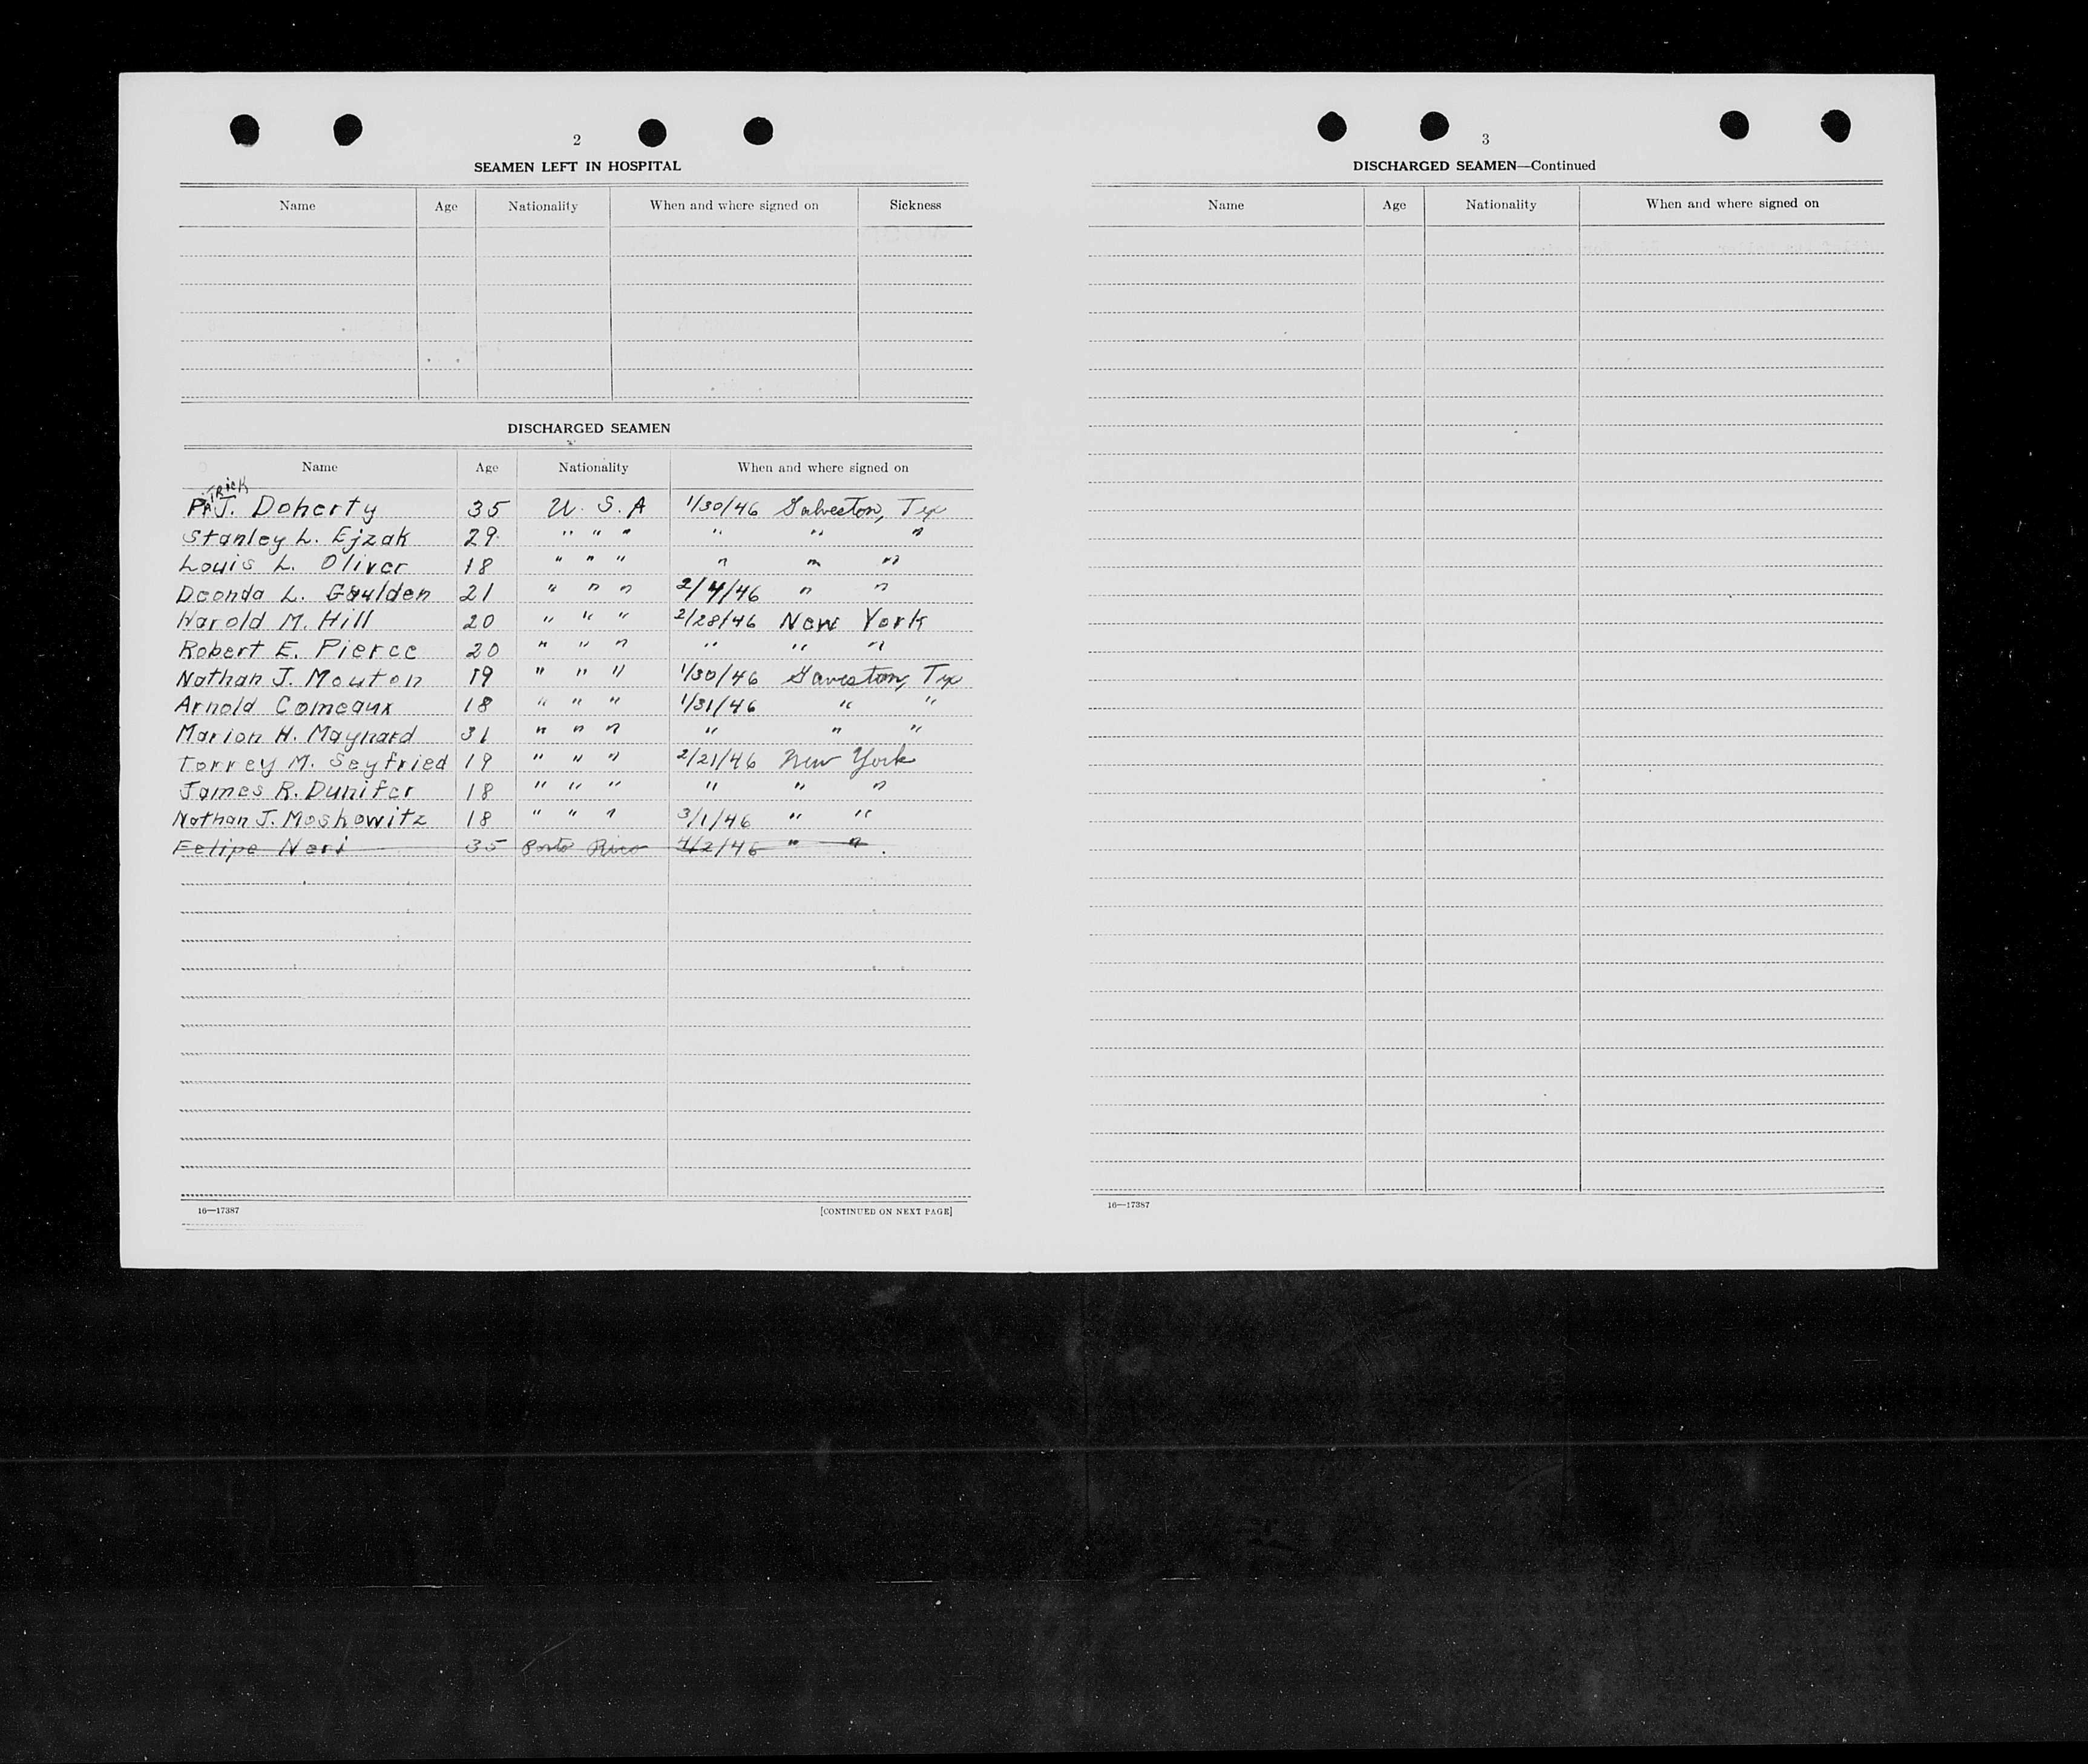 2
SEAMEN LEFT IN HOSPITAL
Name Age Nationality When and where signed on Sickness
DISCHARGED SEAMEN
Name Age Nationality When and where signed on
Patrick J. Doherty 35 U. S. A 1/30/46 Galveston, Tex
Stanley L. Ejzak 29 " " " " " "
Louis L. Oliver 18 " " " " " "
Deonda L. Gaulden 21 " " " 2/4/46 " "
Harold M. Hill 20 " " " 2/28/46 New York
Robert E. Pierce 20 " " " " " "
Nathan J. Mouton 19 " " " 1/30/46 Gaveston, Tex
Arnold Comeaux 18 " " " 1/31/46 " "
Marion H. Maynard 31 " " " " " "
Torrey M. Seyfried 19 " " " 2/21/46 New York
James R. Dunifer 18 " " " " " "
Nathan J. Moshowitz 18 " " " 3/1/46 " "
Felipe Neri 35 Porto Rico 4/2/46 " "
16—17387 [CONTINUED ON NEXT PAGE]
3
DISCHARGED SEAMEN—Continued
Name Age Nationality When and where signed on
16—17387